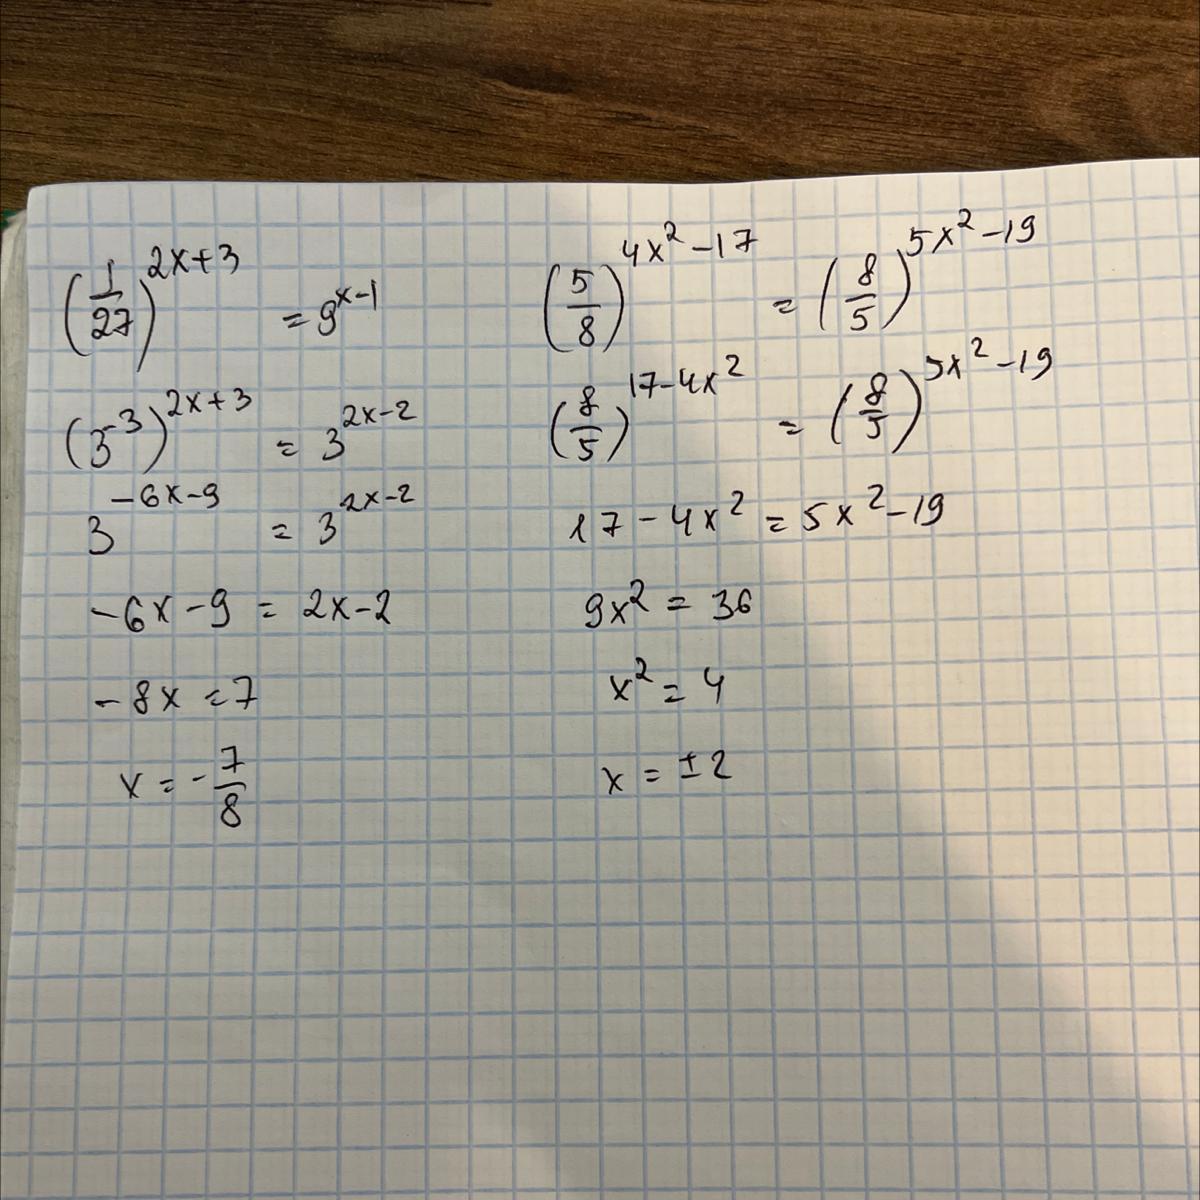 (1/27)^(2x+3) = 9^(x-1)
(3^-3)^(2x+3) = 3^(2x-2)
3^(-6x-9) = 3^(2x-2)
-6x-9 = 2x-2
-8x = 7
x = -7/8
(5/8)^(4x²-17) = (8/5)^(5x²-19)
(8/5)^(17-4x²) = (8/5)^(5x²-19)
17-4x² = 5x²-19
9x² = 36
x² = 4
x = ±2